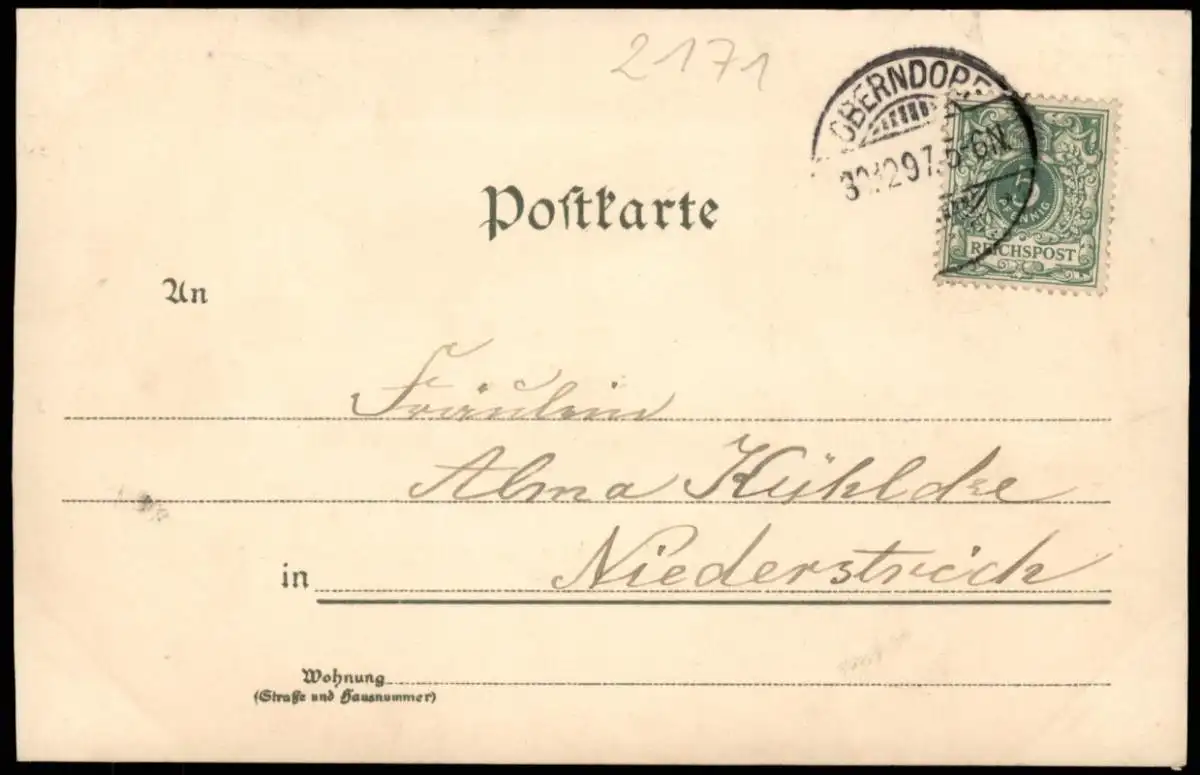 2171
OBERNDORF
31.12.97.5-6N.
Postkarte
5
PFENNIG
REICHSPOST
An
Fräulein
Alma Kühlcke
in Niederstrich
Wohnung
(Straße und Hausnummer)